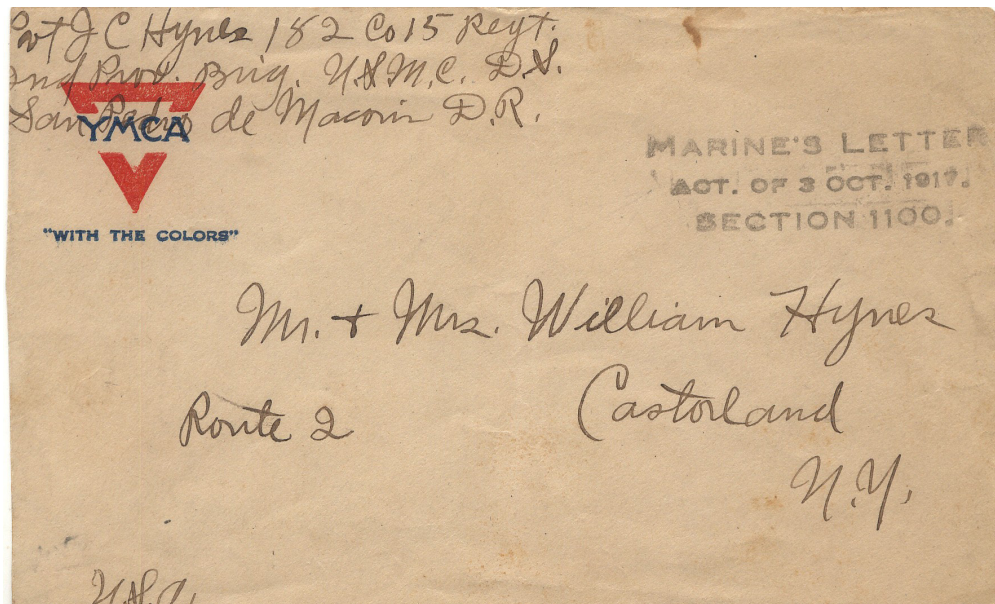 Pvt J C Hynes 182 Co 15 Regt.
2nd Prov. Brig. U.S.M.C. D.S.
San Pedro de Macoris D.R.
YMCA
"WITH THE COLORS"
MARINE'S LETTER
ACT. OF 3 OCT. 1917.
SECTION 1100.
Mr. + Mrs. William Hynes
Route 2 Castorland
N.Y.
U.S.A.